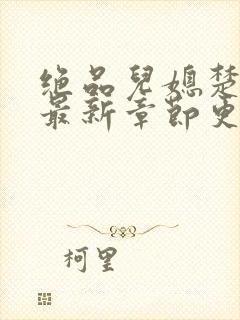 绝品儿媳楚
最新章节更
柯里